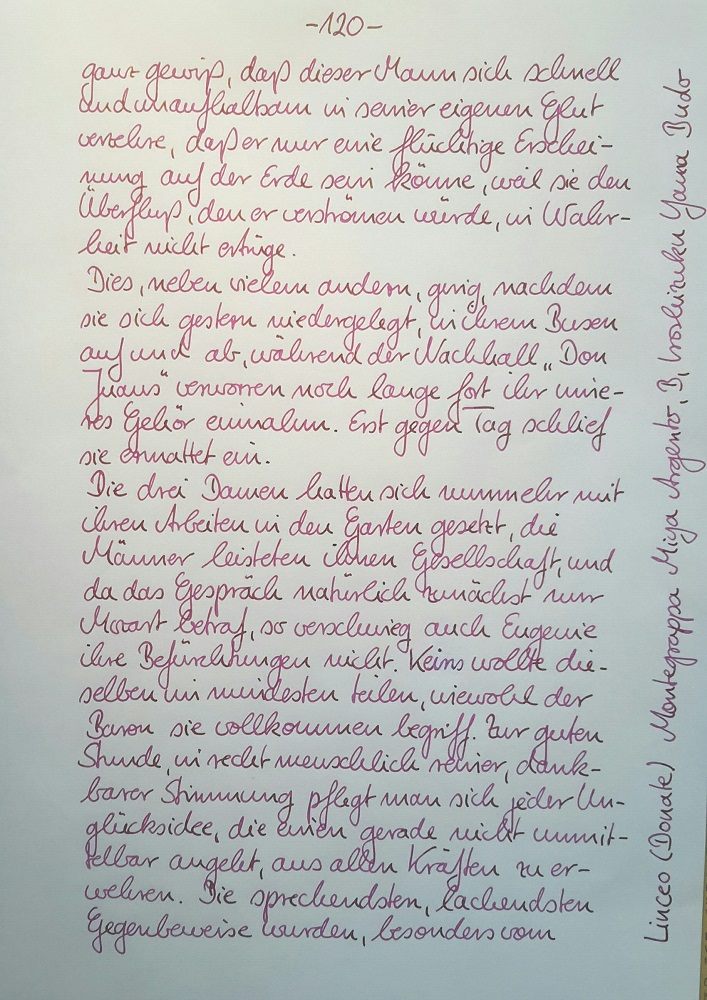 -120-
ganz gewiß, daß dieser Mann sich schnell
und unaufhaltsam in seiner eigenen Glut
verzehre, daß er nur eine flüchtige Erschei-
nung auf der Erde sein könne, weil sie den
Überfluß, den er verströmen würde, in Wahr-
heit nicht ertrüge.
Dies, neben vielem andern, ging, nachdem
sie sich gestern niedergelegt, in ihrem Busen
auf und ab, während der Nachhall „Don
Juans" verworren noch lange fort ihr inne-
res Gehör einnahm. Erst gegen Tag schlief
sie ermattet ein.
Die drei Damen hatten sich nunmehr mit
ihren Arbeiten in den Garten gesetzt, die
Männer leisteten ihnen Gesellschaft, und
da das Gespräch natürlich zunächst nur
Mozart betraf, so verschwieg auch Eugenie
ihre Befürchtungen nicht. Keins wollte die-
selben im mindesten teilen, wiewohl der
Baron sie vollkommen begriff. Zur guten
Stunde, in recht menschlich reiner, dank-
barer Stimmung pflegt man sich jeder Un-
glücksidee, die einen gerade nicht unmit-
telbar angeht, aus allen Kräften zu er-
wehren. Die sprechendsten, lachendsten
Gegenbeweise wurden, besonders vom
Linceo (Donate) Montegrappa Miya Argento, B, Iroshizuku Yama Budo